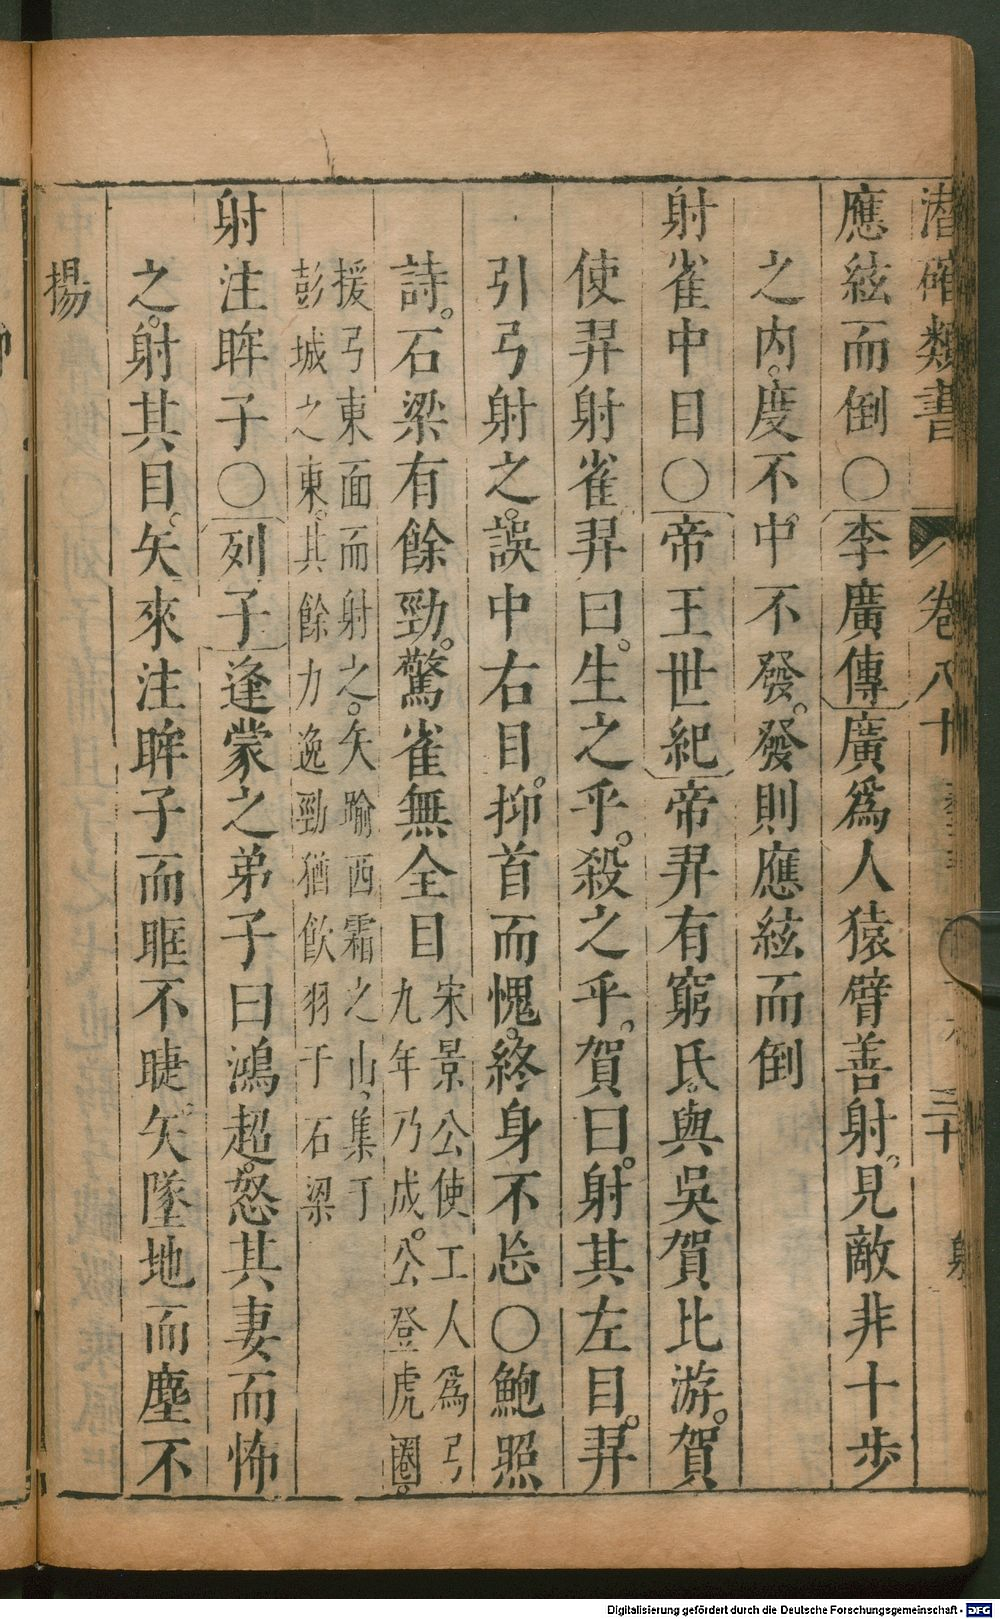 潜確類書
卷八十
三十
應絃而倒○李廣傳廣爲人猿臂善射見敵非十步
之內度不中不發發則應絃而倒
射雀中目○帝王世紀帝羿有窮氏與吳賀比游賀
使羿射雀羿曰生之乎殺之乎賀曰射其左目羿
引弓射之誤中右目抑首而愧終身不忘○鮑照
詩石梁有餘勁驚雀無全目
宋景公使工人爲弓
九年乃成公登虎圈
援弓東面而射之矢踰西霜之山集于
彭城之東其餘力逸勁猶飲羽于石梁
射注眸子○列子逢蒙之弟子曰鴻超怒其妻而怖
之射其目矢來注眸子而眶不睫矢墜地而塵不
揚
Digitalisierung gefördert durch die Deutsche Forschungsgemeinschaft - DFG